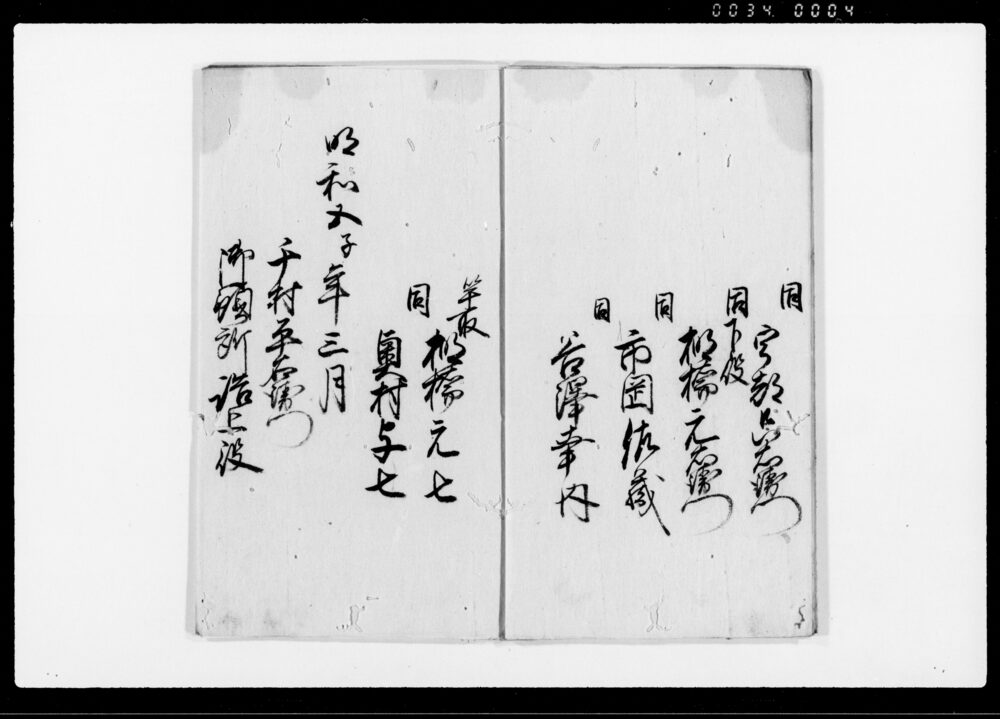 0034 0004
同
宮部只右衛門
同下役
棚橋元右衛門
同
市岡佐蔵
同
谷澤幸内
竿取
棚橋元七
同
奥村与七
明和五子年三月
千村平右衛門
御預所詰上役